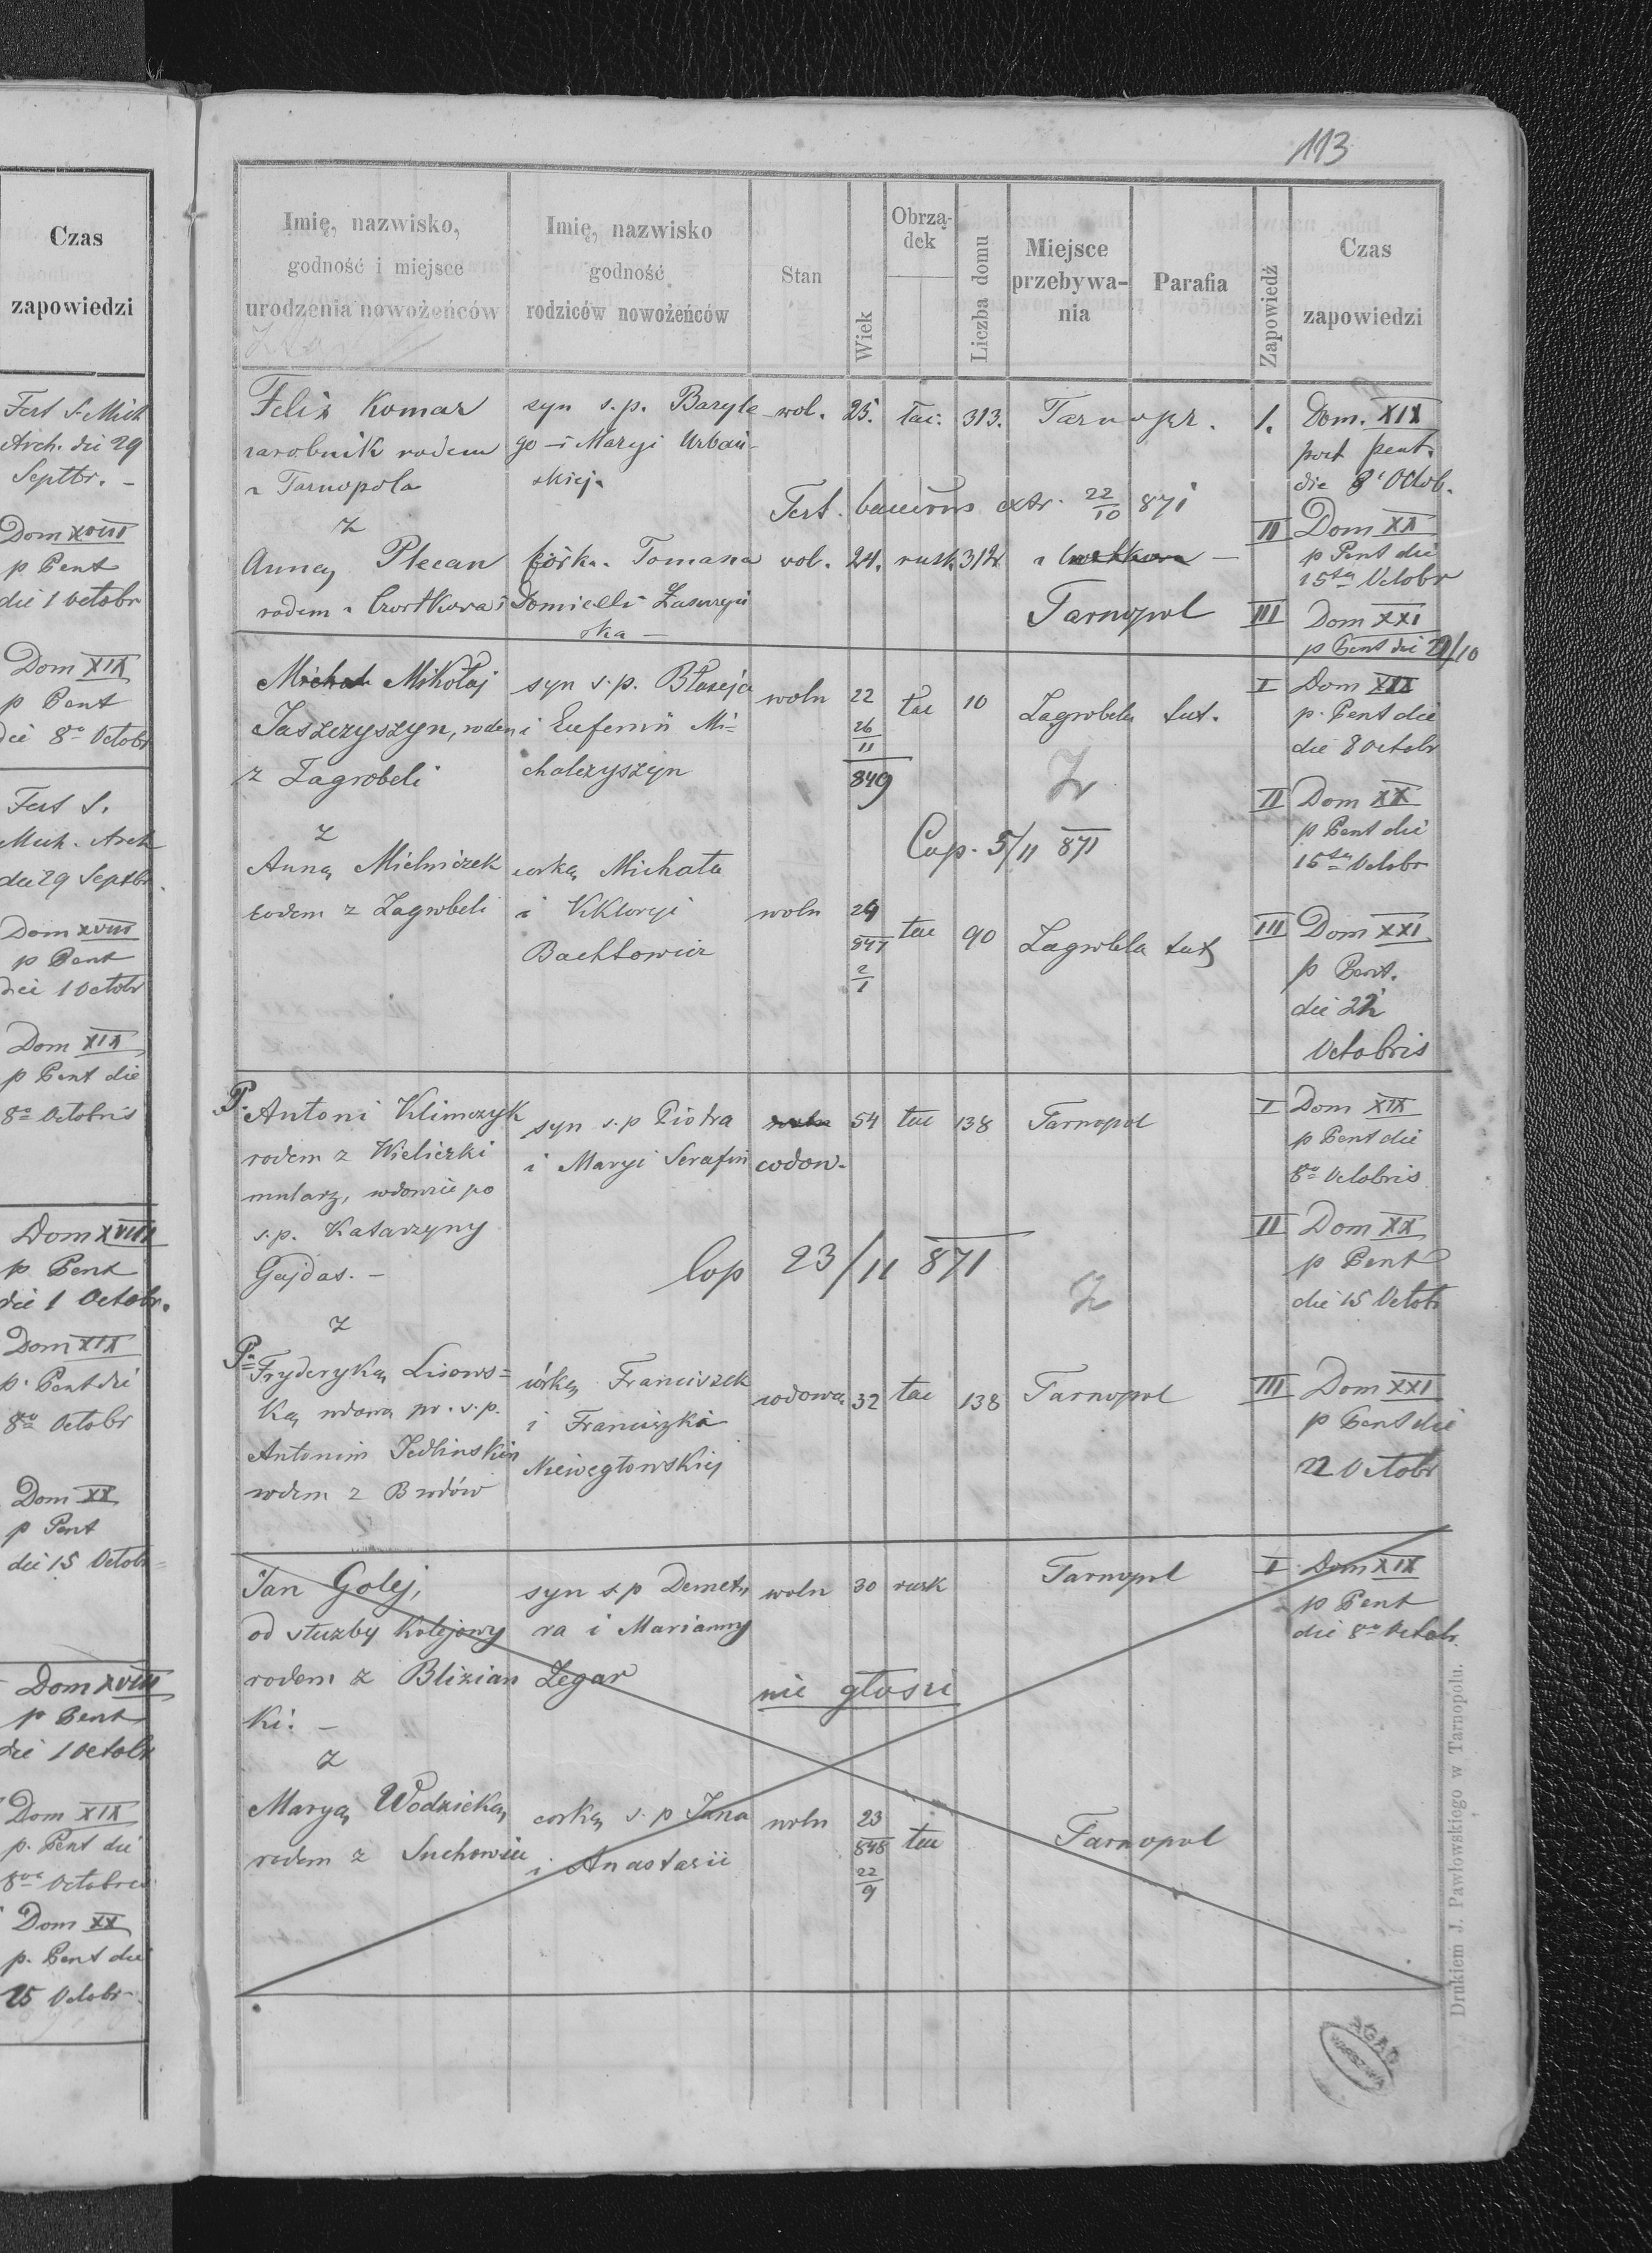 Czas
zapowiedzi
Fest S. Mich
Arch. die 29
Septbr. -
Dom XVIII
p Pent
die 1 Octobr
Dom XIX
p Pent
die 8º Octobr
Fest S.
Mich. Arch
die 29 Septbr.
Dom XVIII
p Pent
die 1 Octobr
Dom XIX
p Pent die
8º Octobris
Dom XVIII
p Pent
die 1 Octobr.
Dom XIX
p. Pent die
8º Octobr
Dom XX
p Pent
die 15 Octobr
Dom XVIII
p Pent
die 1 Octobr
Dom XIX
p. Pent die
8va Octobris
Dom XX
p. Pent die
15 Octobr
113
Imię, nazwisko,
godność i miejsce
urodzenia nowożeńców
Imię, nazwisko
godność
rodziców nowożeńców
Stan
Wiek
Obrzą-
dek
Liczba domu
Miejsce
przebywa-
nia
Parafia
Zapowiedź
Czas
zapowiedzi
Felix Komar syn s.p. Bazyle wol. 25. łać. 313. Tarnopr. 1. Dom. XIX
zarobnik rodem go i Maryi Urbań- post pent.
z Tarnopola skiej. die 8 Octob.
Test. extr. 22/10 871
z II Dom XX
Anną Plecan córk. Tomasza wol. 24. rusk 312 z p Pent die
15ta Octobr
rodem z Czortkowa i Domicelli Tarnopol III Dom XXI
ska - p Pent die 22/10
Michał Mikołaj syn s.p. Błażeja woln 22 łac 10 Zagrobela tut. I Dom XIX
Jaszczyszyn, rodem i Eufemii Mi= 26/11 p. Pent die
die 8 Octobr
z Zagrobeli chalczyszyn 849
Z II Dom XX
z Cop. 5/11 871 p Pent die
Anną Mielniczek corką Michała 15ta Octobr
rodem z Zagrobeli i Wiktoryi woln 24 łac 90 Zagrobela tut III Dom XXI
Bachtowicz 847 2/1 p Pent.
die 22
Octobris
P. Antoni Klimczyk syn s.p Piotra woln 54 łac 138 Tarnopol I Dom XIX
rodem z Wieliczki i Maryi Serafin wdow. p Pent die
mularz, wdowiec po 8º Octobris
s.p. Katarzyny II Dom XX
Gajdas. - Cop 23/11 871 Z p Pent
die 15 Octobr
z
Pª Fryderyką Lisows= córką Franciszek wdowa 32 łac 138 Tarnopol III Dom XXI
ką wdową po. s.p. i Franciszki p Pent die
Antonim Jedlinskim Niewegłowskiej 22 Octobr
rodem z Brodów
Jan Golej, syn s.p Demet woln 30 rusk Tarnopol I Dom XIX
od służby kolejowy ra i Marianny p Pent
die 8º Octobr.
rodem z Blizian Zegar nie głosi
ki. -
z
Maryą Wodzicką, corką s.p Jana woln 23 łac Tarnopol
848
rodem z Suchowiec i Anastazii 22/9
Drukiem J. Pawłowskiego w Tarnopolu.
AGAD
WARSZAWA